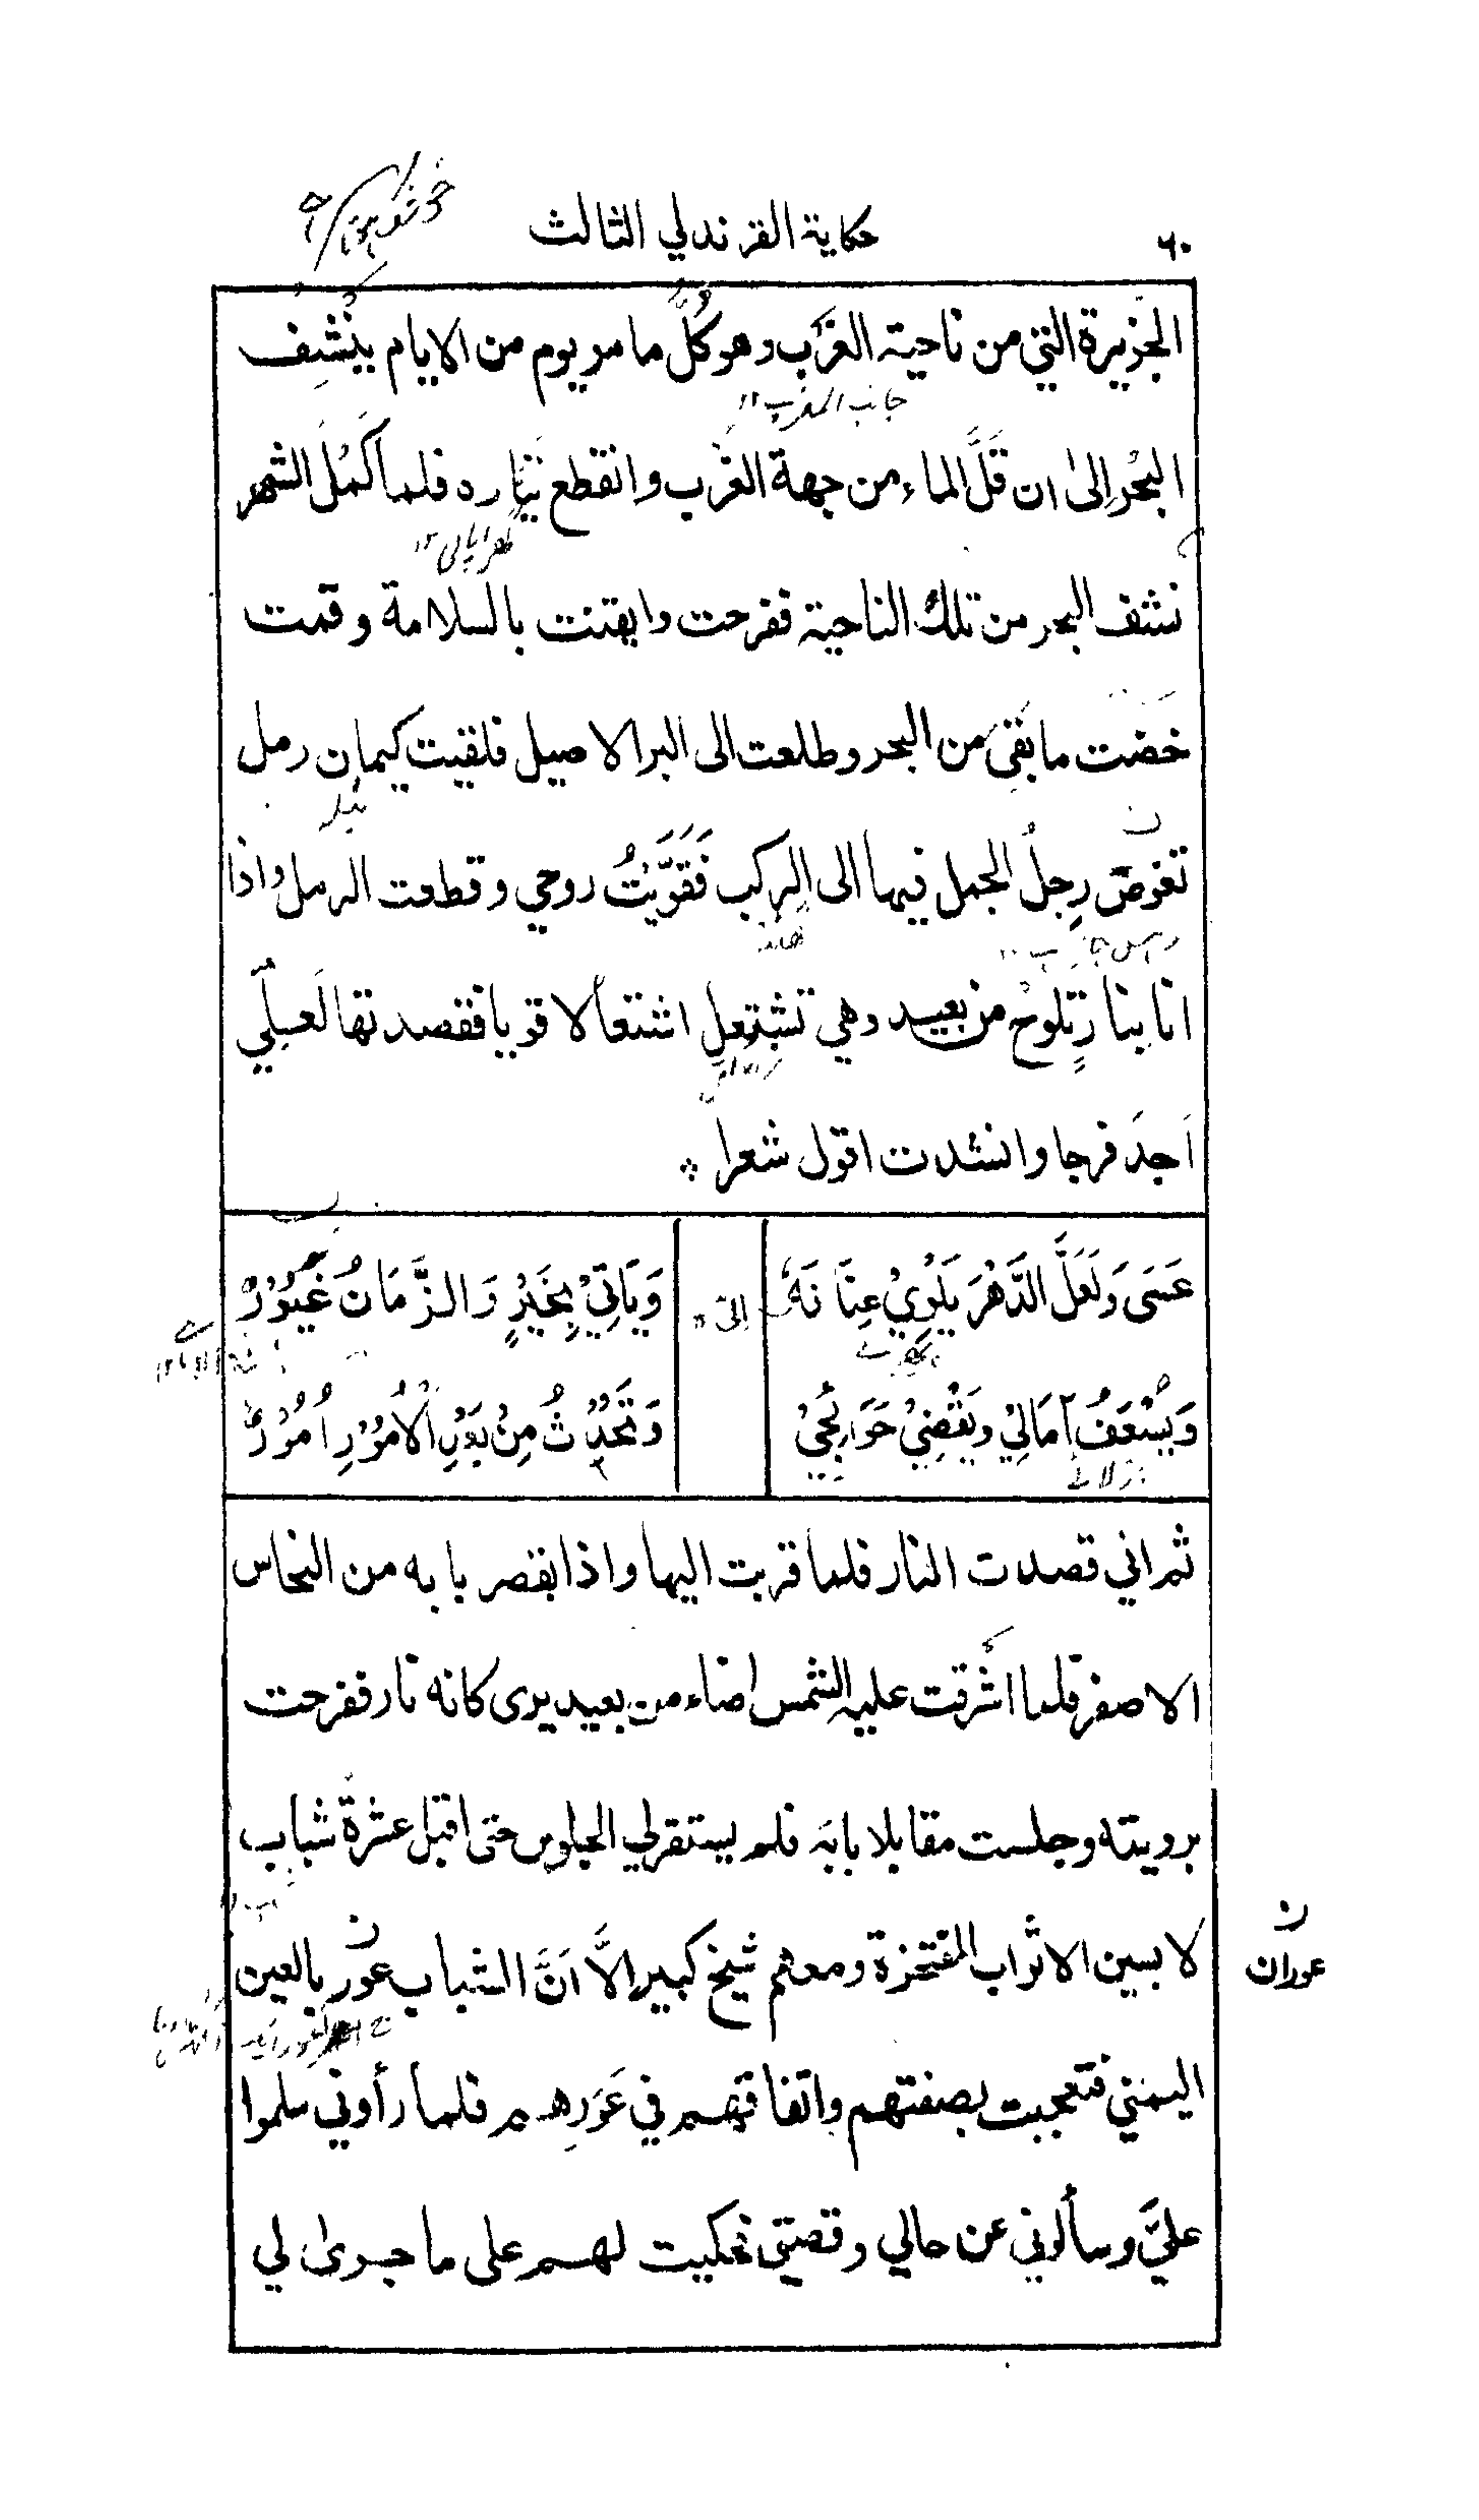 ٦٠ حكاية القرندلي الثالث
الجَزيرة التي من ناحية الغَرب وهو كُلَّ ما مر يوم من الايام ينْشِف
جانب المغرب
البَحْر الىٰ ان قَلَّ الماء من جهة الغَرب وانقطع تيَّاره فلما كَمُلَ الشهر
نشف البحر من تلك الناحية ففرحت وايقنت بالسلامة وقمت
خَضت ما بقيَ من البحر وطلعت الى البر الاصيل فلقيت كيمان رمل
تغوص رِجلُ الجمل فيها الى الركب فَقَوَّيْتُ روحي وقطعت الرمل واذا
انا بنارٍ تلوحُ من بعيد وهي تشتعل اشتعالا قويا فقصدتها لَعلِّي
اَجدَ فرجا وانشدت اقول شعرا
عَسَى وَلَعَلَّ الدَّهْرَ يَلْوِيْ عِنَانَهُ وَيَاتِيْ بِخَيْرٍ وَالزَّمَانُ غَيُوْرٌ
وَيُسْعَفُ آمَالِيْ وَيَقْضِيْ حَوَائِجِيْ وَتَحْدُثُ مِنْ بَعْدِ الْاُمُوْرِ اُمُوْرٌ
ثم اني قصدت النار فلما قربت اليها واذا بقصر بابه من النحاس
الاصفر فلما اشرقت عليه الشمس اضاء من بعيد يرى كانه نار ففرحت
برويته وجلست مقابلا بابَه فلم يستقر لي الجلوس حتى اقبل عشرةُ شباب
لابسين الاثواب المفتخرة ومعهم شيخ كبير الَّا اَنَّ الشباب عُور بالعين
ن
عوران
اليمنى فتعجبت بصفتهم واتفاقهم في عَوَرِهم فلما رأوني سلموا
عليَّ وسألوني عن حالي وقصتي فحكيت لهم على ما جرىٰ لي